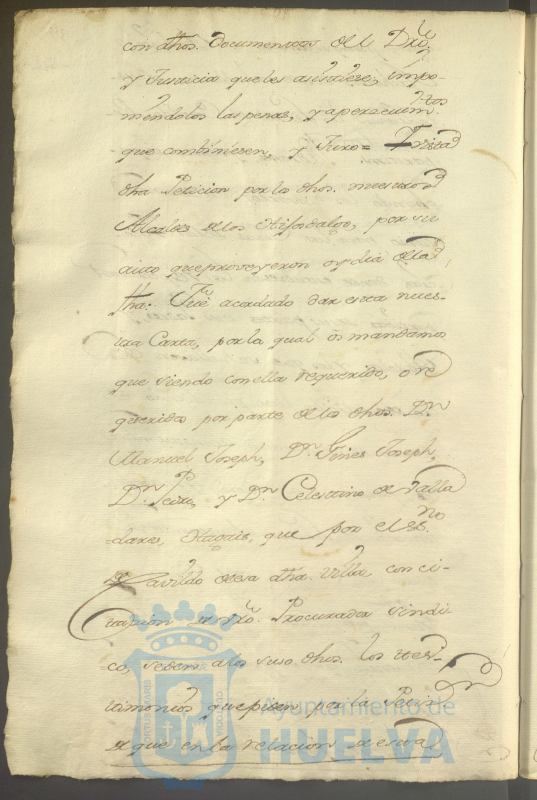 con dhos. Documentos de el Dro.
y Justicia que les asistiese, impo-
niendolos las penas, y apercevim.tos
que combiniesen, y Juro = Y vista
dha Peticion por lo dhos. nuestros
Alcaldes de los Hijosdalgo, por su
auto que proveyeron oy dia de la
fha. Fué acordado dar esta nues-
tra Carta, por la qual ôs mandamos
que siendo con ella requerido, o re
queridos por parte de los dhos. Dn.
Manuel Joseph, Dn. Gines Joseph,
Dn. Pedro, y Dn. Celestino de Valla
dares, Hagais, que por el Es.no
Cavildo de esa dha. Villa, con ci-
tacion de vro. Procurador sindi-
co, se den a los suso dhos. los tes-
timonios que piden por la Peticion
de que en la relacion de esta
Ayuntamiento de
HUELVA
PORTUS MARIS
CUSTODIA